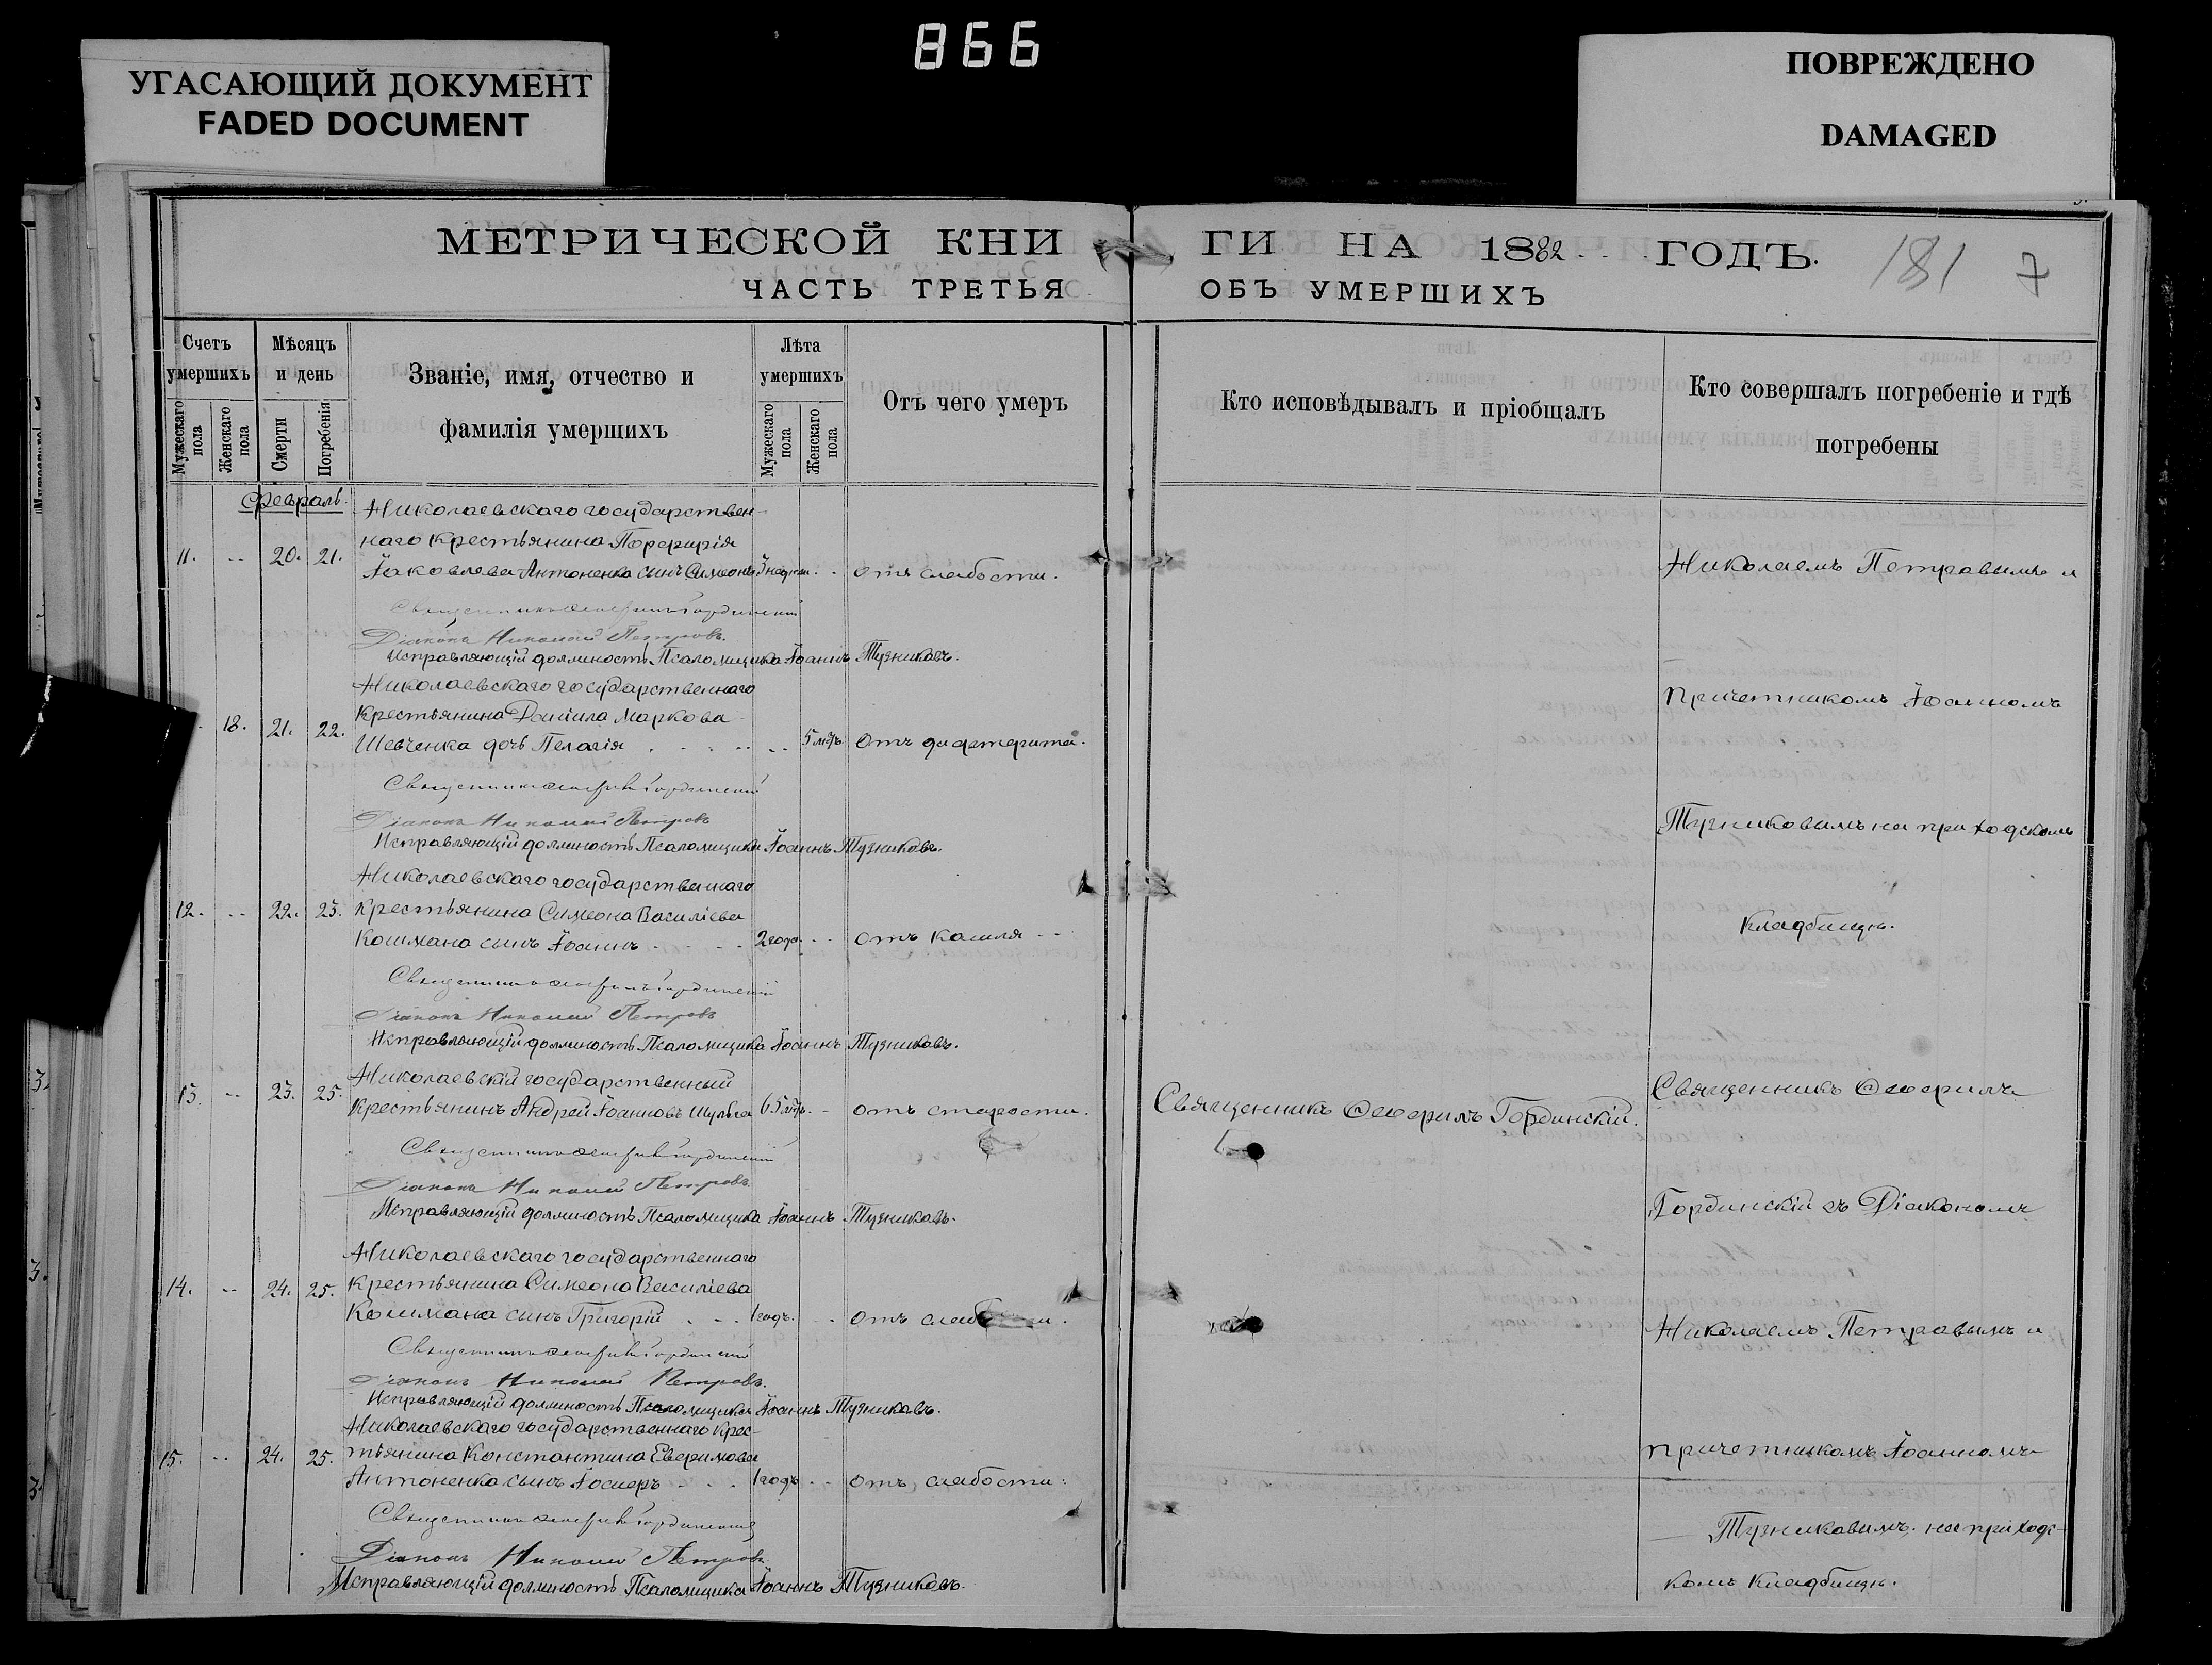 866
УГАСАЮЩИЙ ДОКУМЕНТ
FADED DOCUMENT
ПОВРЕЖДЕНО
DAMAGED
МЕТРИЧЕСКОЙ КНИ
ГИ НА 1882 ГОДЪ.
181 7
ЧАСТЬ ТРЕТЬЯ
ОБЪ УМЕРШИХЪ
Счетъ умершихъ
Мужескаго пола
Женскаго пола
Мѣсяцъ и день
Смерти
Погребенія
Званіе, имя, отчество и
фамилія умершихъ
Лѣта умершихъ
Мужескаго пола
Женскаго пола
Отъ чего умеръ
Кто исповѣдывалъ и пріобщалъ
Кто совершалъ погребеніе и гдѣ
погребены
Февраль.
Николаевскаго государствен-
наго крестьянина Порфирія
11. -- 20. 21. Іаковлева Антоненка сынъ Симеонъ 3 недѣли. - отъ слабости.
Священникъ Гординскій
Діаконъ Николай Петровъ.
Исправляющій должность Псаломщика Іоаннъ Тузниковъ.
Николаевскаго государственнаго
крестьянина Даніила Маркова
18. 21. 22. Шевченка дочь Пелагія 5 лѣтъ. Отъ дифтерита.
Священникъ Гординскій
Діаконъ Николай Петровъ
Исправляющій должность Псаломщика Іоаннъ Тузниковъ.
Николаевскаго государственнаго
12. -- 22. 23. крестьянина Симеона Василіева
Кошмана сынъ Іоаннъ 2 года. - - отъ кашля --
Священникъ Гординскій
Діаконъ Николай Петровъ
Исправляющій должность Псаломщика Іоаннъ Тузниковъ.
Николаевскій государственный
13. -- 23. 25. крестьянинъ Андрей Іоанновъ 65 лѣтъ. - отъ старости.
Священникъ Гординскій
Діаконъ Николай Петровъ.
Исправляющій должность Псаломщика Іоаннъ Тузниковъ.
Николаевскаго государственнаго
14. -- 24. 25. крестьянина Симеона Василіева
Кошмана сынъ Григорій 1 годъ. - отъ слабости.
Священникъ Гординскій
Діаконъ Николай Петровъ.
Исправляющій должность Псаломщика Іоаннъ Тузниковъ.
Николаевскаго государственнаго крес-
15. -- 24. 25. тьянина Константина Евфимова
Антоненка сынъ Іосифъ 1 годъ - - отъ слабости.
Священникъ Гординскій
Діаконъ Николай Петровъ
Исправляющій должность Псаломщика Іоаннъ Тузниковъ.
Священникъ Северинъ Гординскій.
Николаемъ Петровымъ и
причетникомъ Іоанномъ
Тузниковымъ на приходскомъ
кладбищѣ.
Священникъ Северинъ
Гординскій съ Діакономъ
Николаемъ Петровымъ и
причетникомъ Іоанномъ
Тузниковымъ. на приходс-
комъ кладбищѣ.